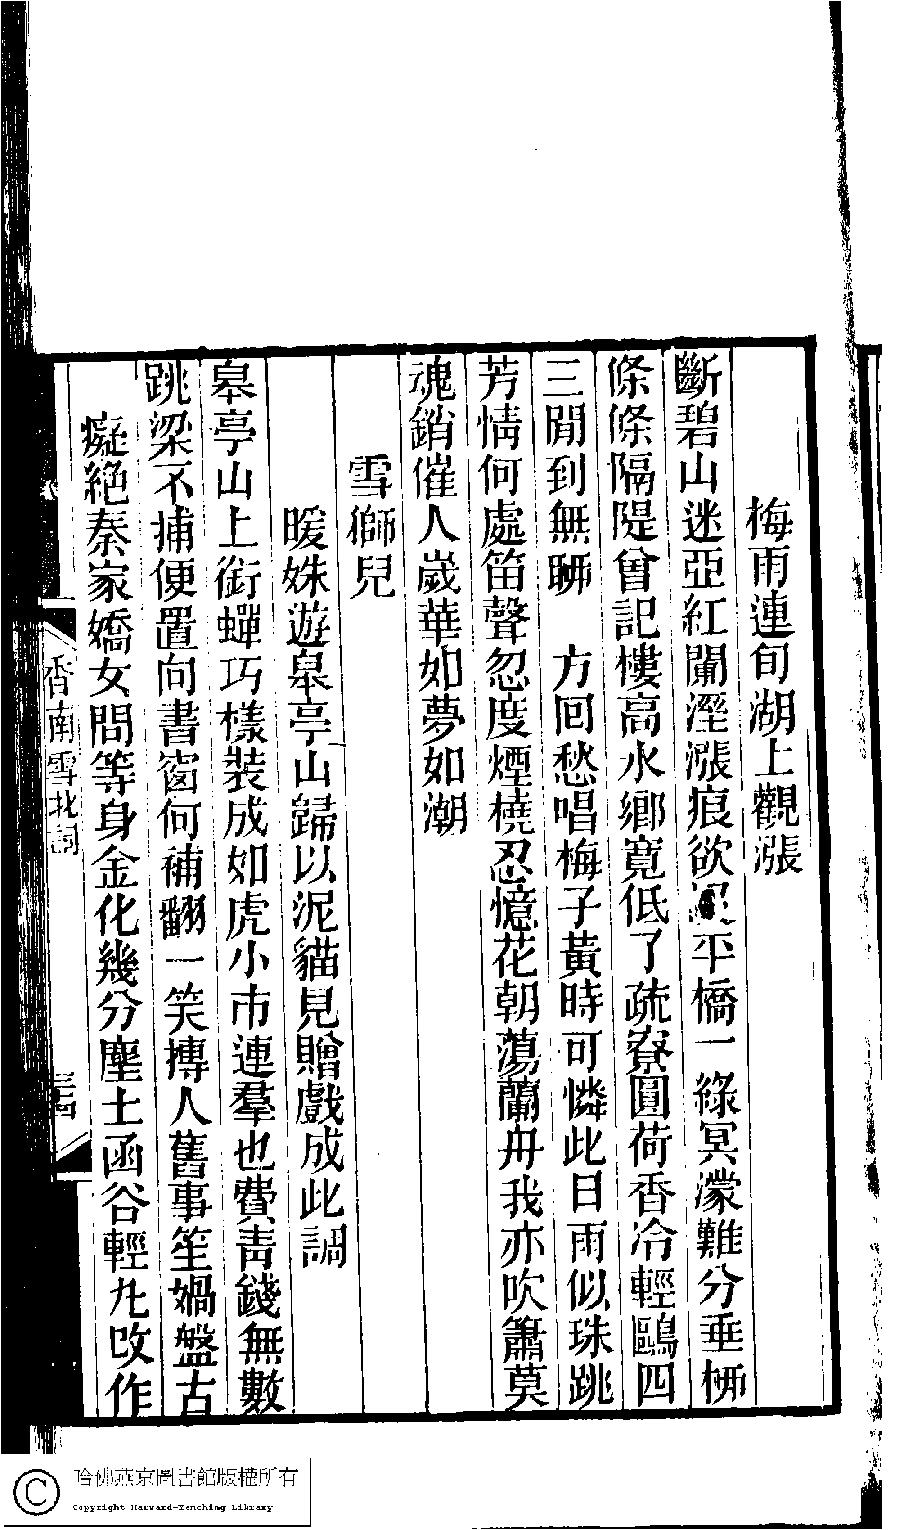 梅雨連旬湖上觀漲
斷碧山迷亞紅闌溼漲痕欲平橋一綠冥濛難分垂柳
條條隔隄曾記樓高水鄉寬低了疏寮圓荷香冷輕鷗四
三閒到無聊　方回愁唱梅子黃時可憐此日雨似珠跳
芳情何處笛聲忽度煙橈忍憶花朝蕩蘭舟我亦吹簫莫
魂銷催人歲華如夢如潮
雪獅兒
暖姝遊皋亭山歸以泥貓見贈戲成此調
皋亭山上銜蟬巧樣裝成如虎小市連羣也費青錢無數
跳梁不捕便置向書窗何補翻一笑摶人舊事笙媧盤古
癡絕秦家嬌女問等身金化幾分塵土函谷輕丸改作
香南雪北詞
哈佛燕京圖書館版權所有
Copyright Harvard-Yenching Library